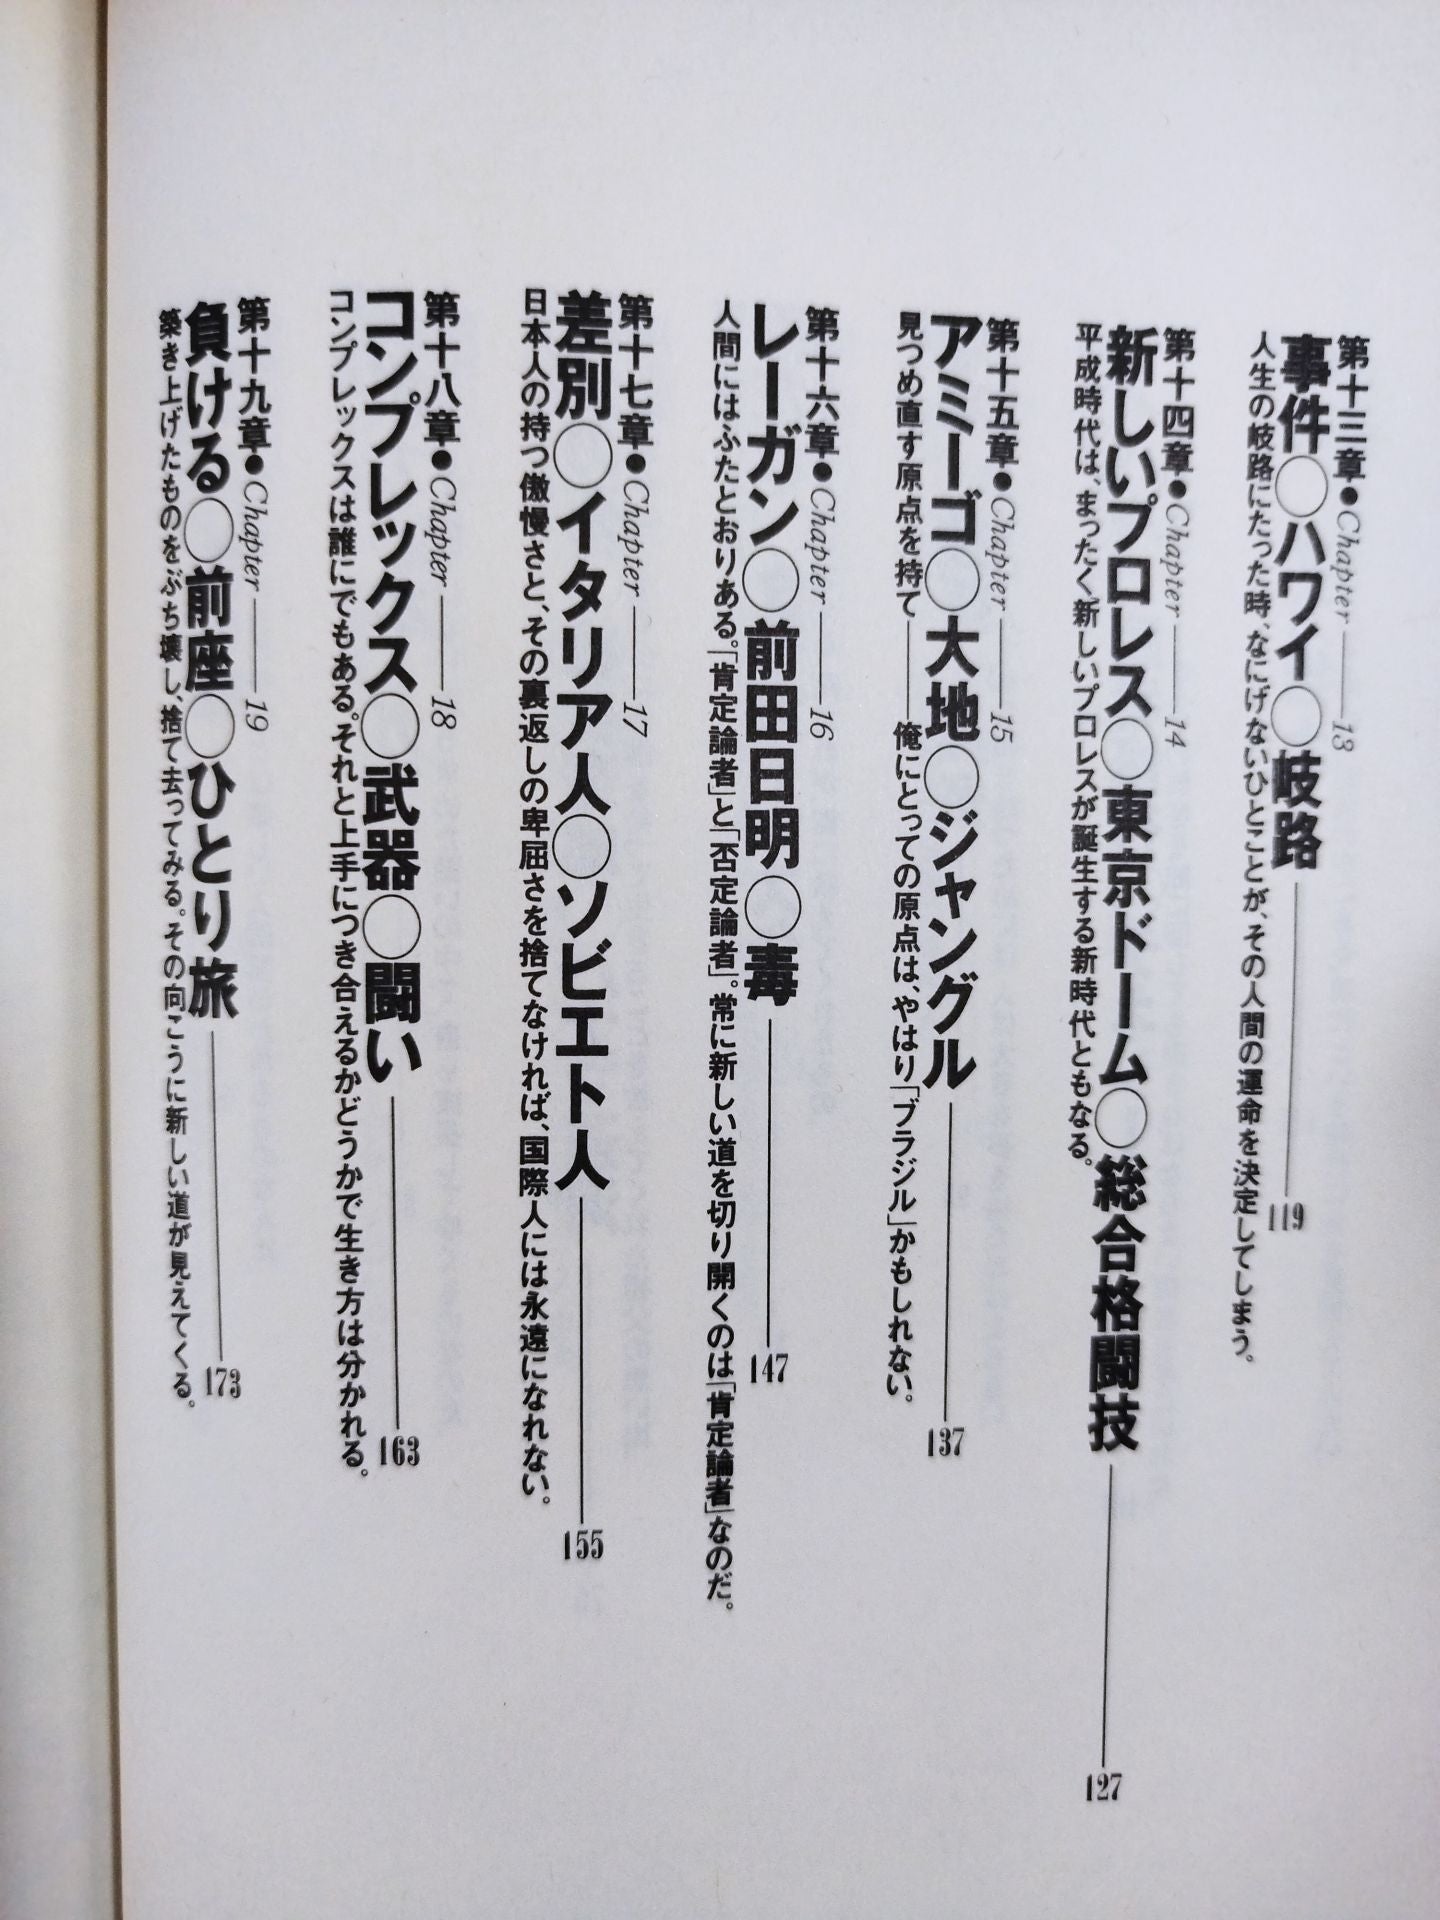 第十三章●Chapter——13
事件○ハワイ○岐路——119
人生の岐路にたった時、なにげないひとことが、その人間の運命を決定してしまう。
第十四章●Chapter——14
新しいプロレス○東京ドーム○総合格闘技——127
平成時代は、まったく新しいプロレスが誕生する新時代ともなる。
第十五章●Chapter——15
アミーゴ○大地○ジャングル——137
見つめ直す原点を持て——俺にとっての原点は、やはり「ブラジル」かもしれない。
第十六章●Chapter——16
レーガン○前田日明○毒——147
人間にはふたとおりある。「肯定論者」と「否定論者」。常に新しい道を切り開くのは「肯定論者」なのだ。
第十七章●Chapter——17
差別○イタリア人○ソビエト人——155
日本人の持つ傲慢さと、その裏返しの卑屈さを捨てなければ、国際人には永遠になれない。
第十八章●Chapter——18
コンプレックス○武器○闘い——163
コンプレックスは誰にでもある。それと上手につき合えるかどうかで生き方は分かれる。
第十九章●Chapter——19
負ける○前座○ひとり旅——173
築き上げたものをぶち壊し、捨て去ってみる。その向こうに新しい道が見えてくる。